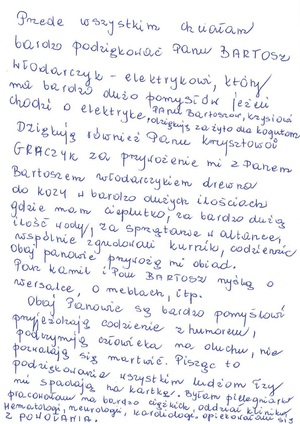 Przede wszystkim chciałam
bardzo podziękować Panu BARTOSZ
WŁODARCZYK - elektrykowi, który
ma bardzo dużo pomysłów jeżeli
chodzi o elektrykę. Panu Bartoszowi, Krysiowi
dziękuję za żyto dla kogutów
Dziękuję również Panu Krzysztofowi
GRACZYK za przywożenie mi z Panem
Bartoszem włodarczykiem drewna
do kozy w bardzo dużych ilościach
gdzie mam cieplutko, za bardzo dużą
ilość wody, za sprzątanie w altance,
wspólnie zbudowali kurnik, codziennie
Obaj panowie przywożą mi obiad.
Pan Kamil i Pan BARTOSZ myślą o
wersalce, o meblach, itp.
Obaj Panowie są bardzo pomysłowi
przyjeżdżają codzienie z humorem,
podtrzymują człowieka na duchu, nie
pozwalają się martwić. Pisząc to
podziękowanie wszystkim ludziom łzy
mi spadają na kartkę. Byłam pielęgniarką
pracowałam na bardzo ciężkich oddział klinik
Hematologi, neurologi, kardiologi. opiekowałam się
Z POWOŁANIA.